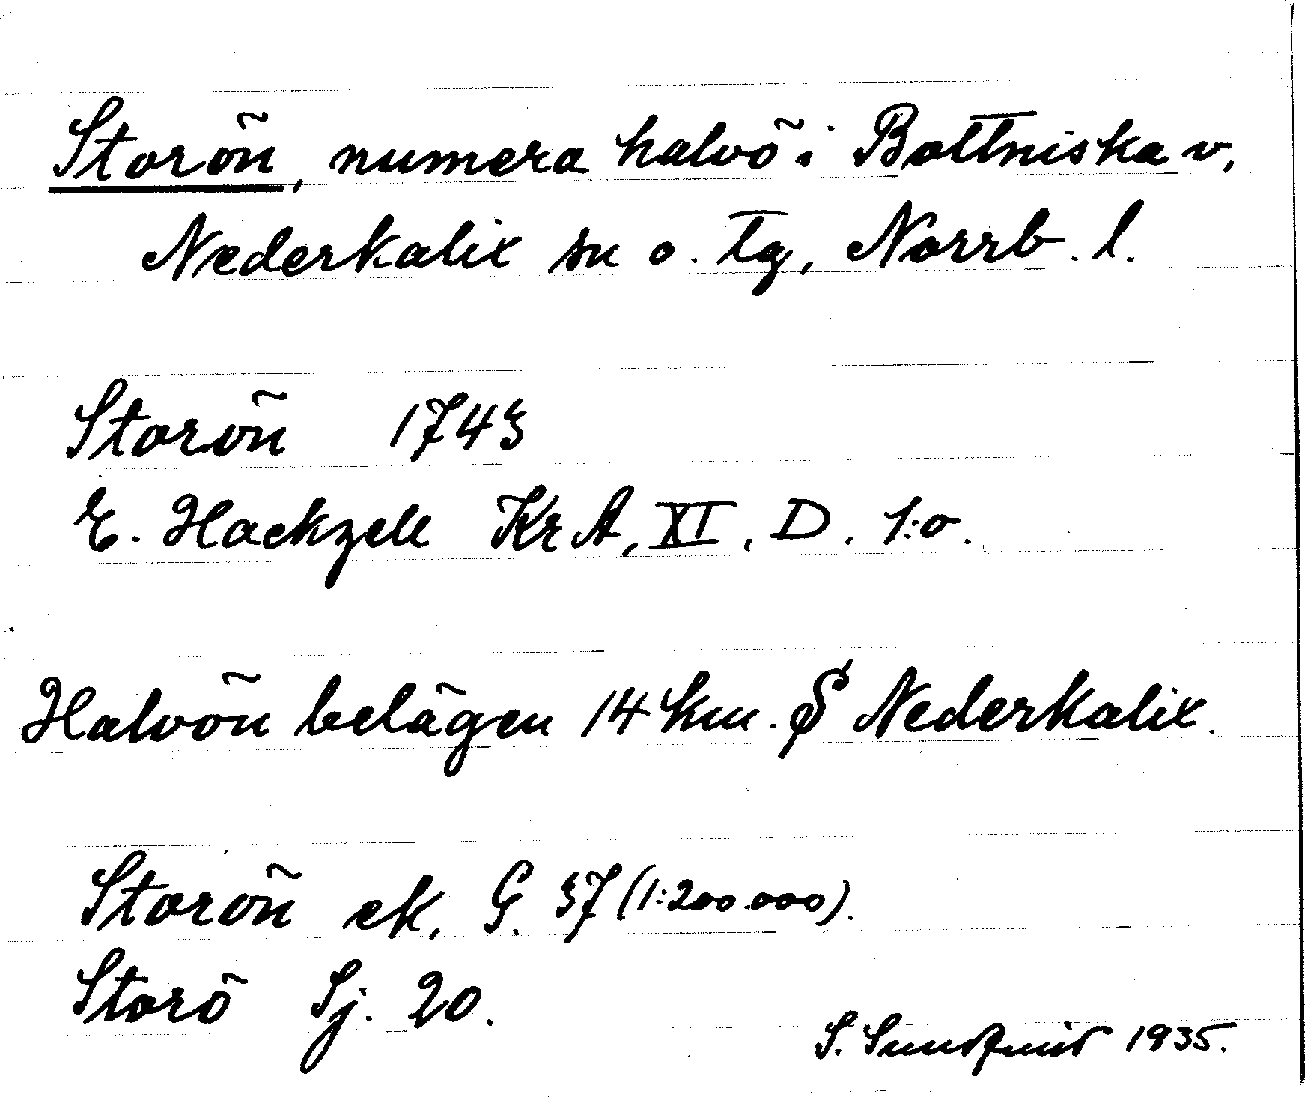 Storön, numera halvö i Bottniska v,
Nederkalix sn o. tg, Norrb. l.
Storön 1743
E. Hackzell KrA, XI, D. 1:o.
Halvön belägen 14 km. S Nederkalix.
Storön ek. G. 37 (1:200.000).
Storö Sj. 20.
S. Sundqvist 1935.